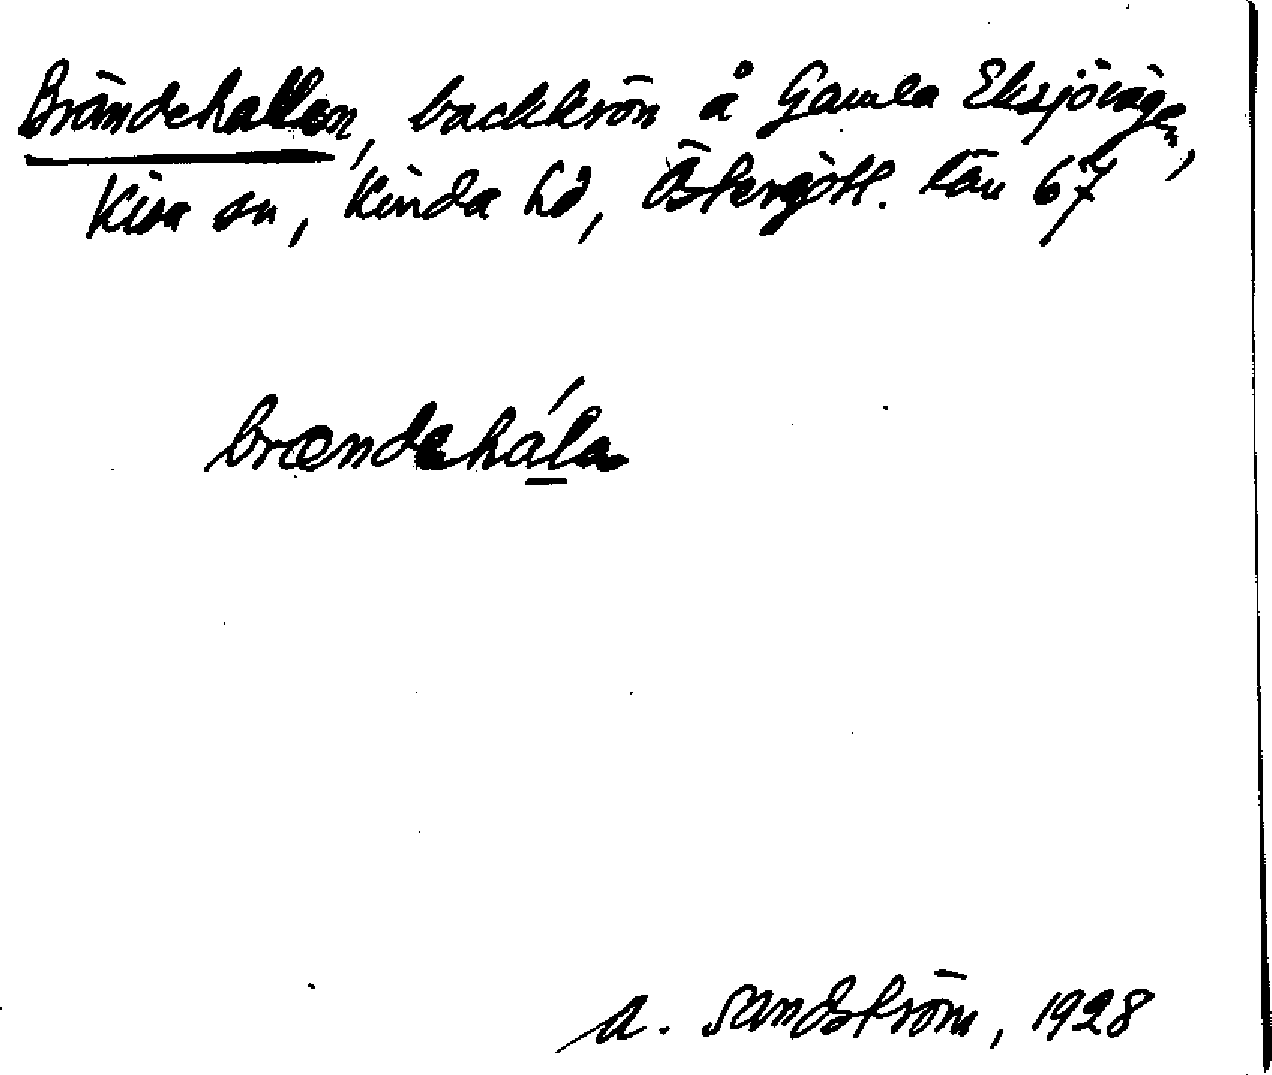 Brändehallen, backkrön å Gamla Eksjövägen,
Kisa sn, Kinda hd, Östergötl. län 67
brændehála
A. Sandström, 1928